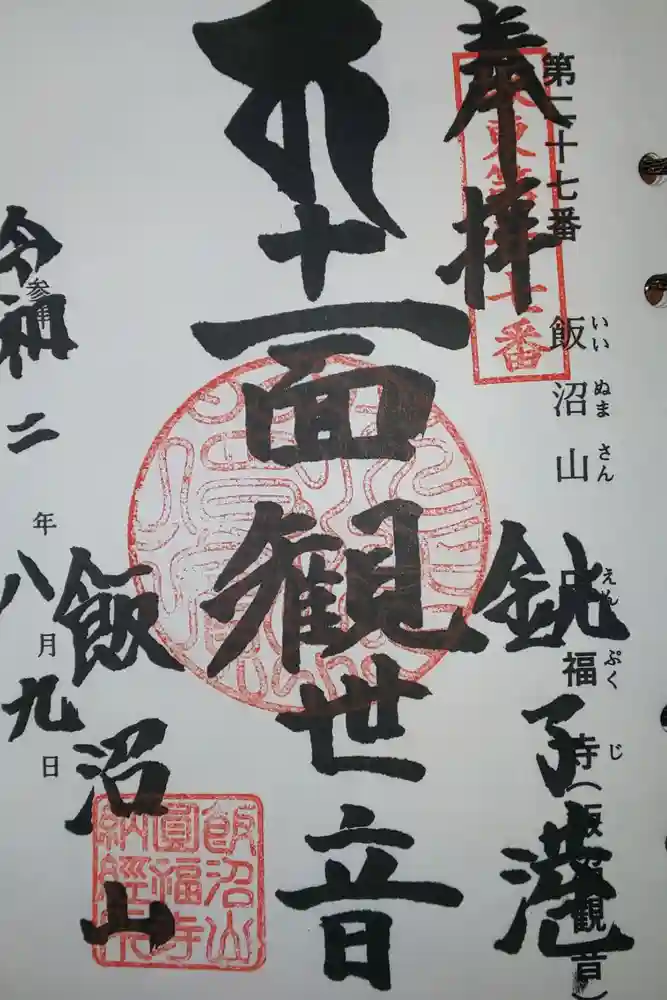 第二十七番
飯沼山
いいぬまさん
福寺
えんぷくじ
坂東第二十七番
奉拝
銚子港
十一面観世音
飯沼山
飯沼山
圓福寺
納経
令和二年八月九日
参拝